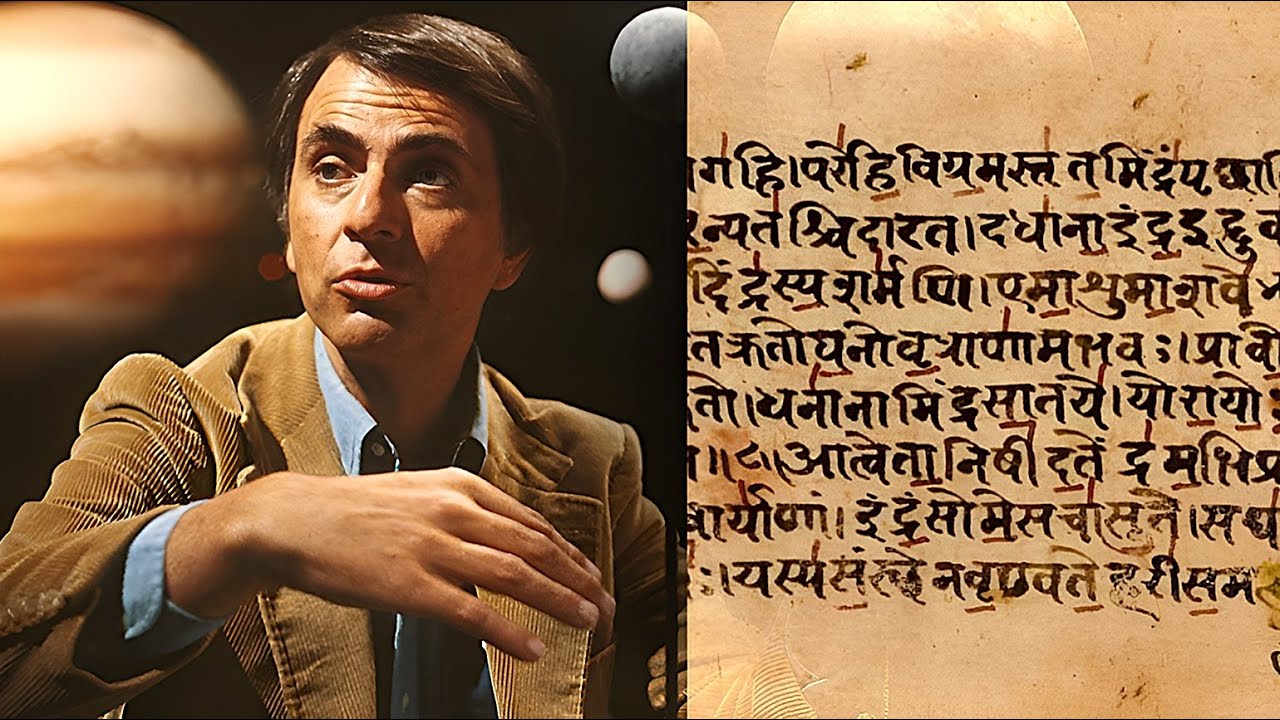 गहि।परेहिविग्रमस्तृतमिंद्रंपृच्छा
न्यतश्चिदारत।दधानाइंद्रइद्दुव
दिंद्रस्यशर्मणि॥एमाशुमाशवे
तक्रतोघनोवृत्राणामभवः।प्रावो
तो।धनानामिंद्रसातये।योरायो
॥८॥आत्वेतानिषीदतेंद्रमभिप्र
वार्याणां।इंद्रंसोमेसचासुते।सघा
यस्यसंस्थेनवृण्वतेहरीसम